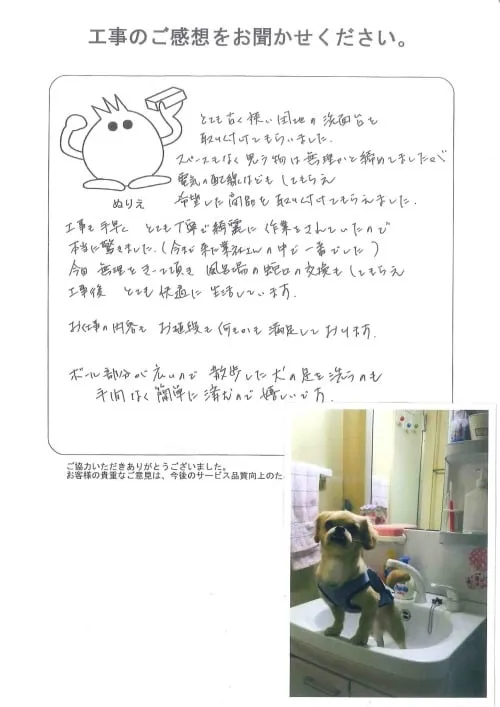 工事のご感想をお聞かせください。
とても古く狭い団地の洗面台を
取り付けてもらいました。
スペースもなく思う物は無理かと諦めてましたが
電気の配線などもしてもらえ
希望した商品を取り付けてもらえました。
ぬりえ
工事も手早く とても丁寧で綺麗に作業をされていたので
本当に驚きました。(今まで来た業社さんの中で一番でした)
今回 無理をきって頂き 風呂場の蛇口の交換もしてもらえ
工事後 とても快適に生活しています。
お仕事の内容も お値段も 何もかも満足しております。
ボール部分が広いので 散歩した犬の足を洗うのも
手間なく簡単に済むので嬉しいです。
ご協力いただきありがとうございました。
お客様の貴重なご意見は、今後のサービス品質向上のた